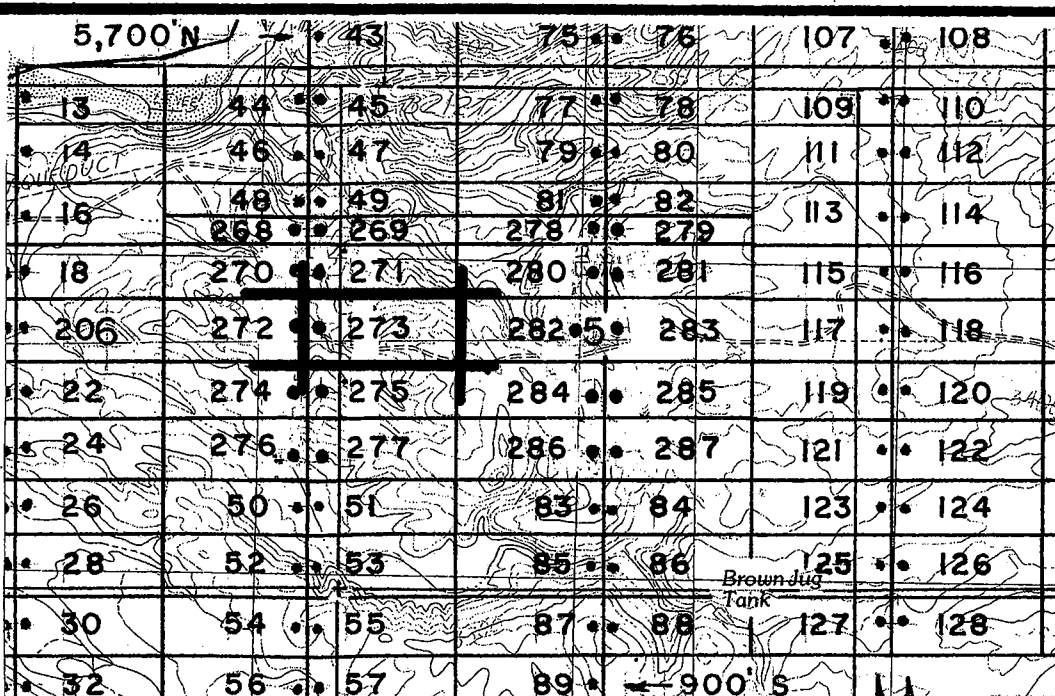 5,700'N 43 75 76 107 108
13 44 45 77 78 109 110
14 46 47 79 80 111 112
QUEDUCT
16 48 49 81 82 113 114
268 269 278 279
18 270 271 280 281 115 116
206 272 273 282 5 283 117 118
22 274 275 284 285 119 120
24 276 277 286 287 121 122
26 50 51 83 84 123 124
28 52 53 85 86 125 126
Brown Jug
Tank
30 54 55 87 88 127 128
32 56 57 89 900' S